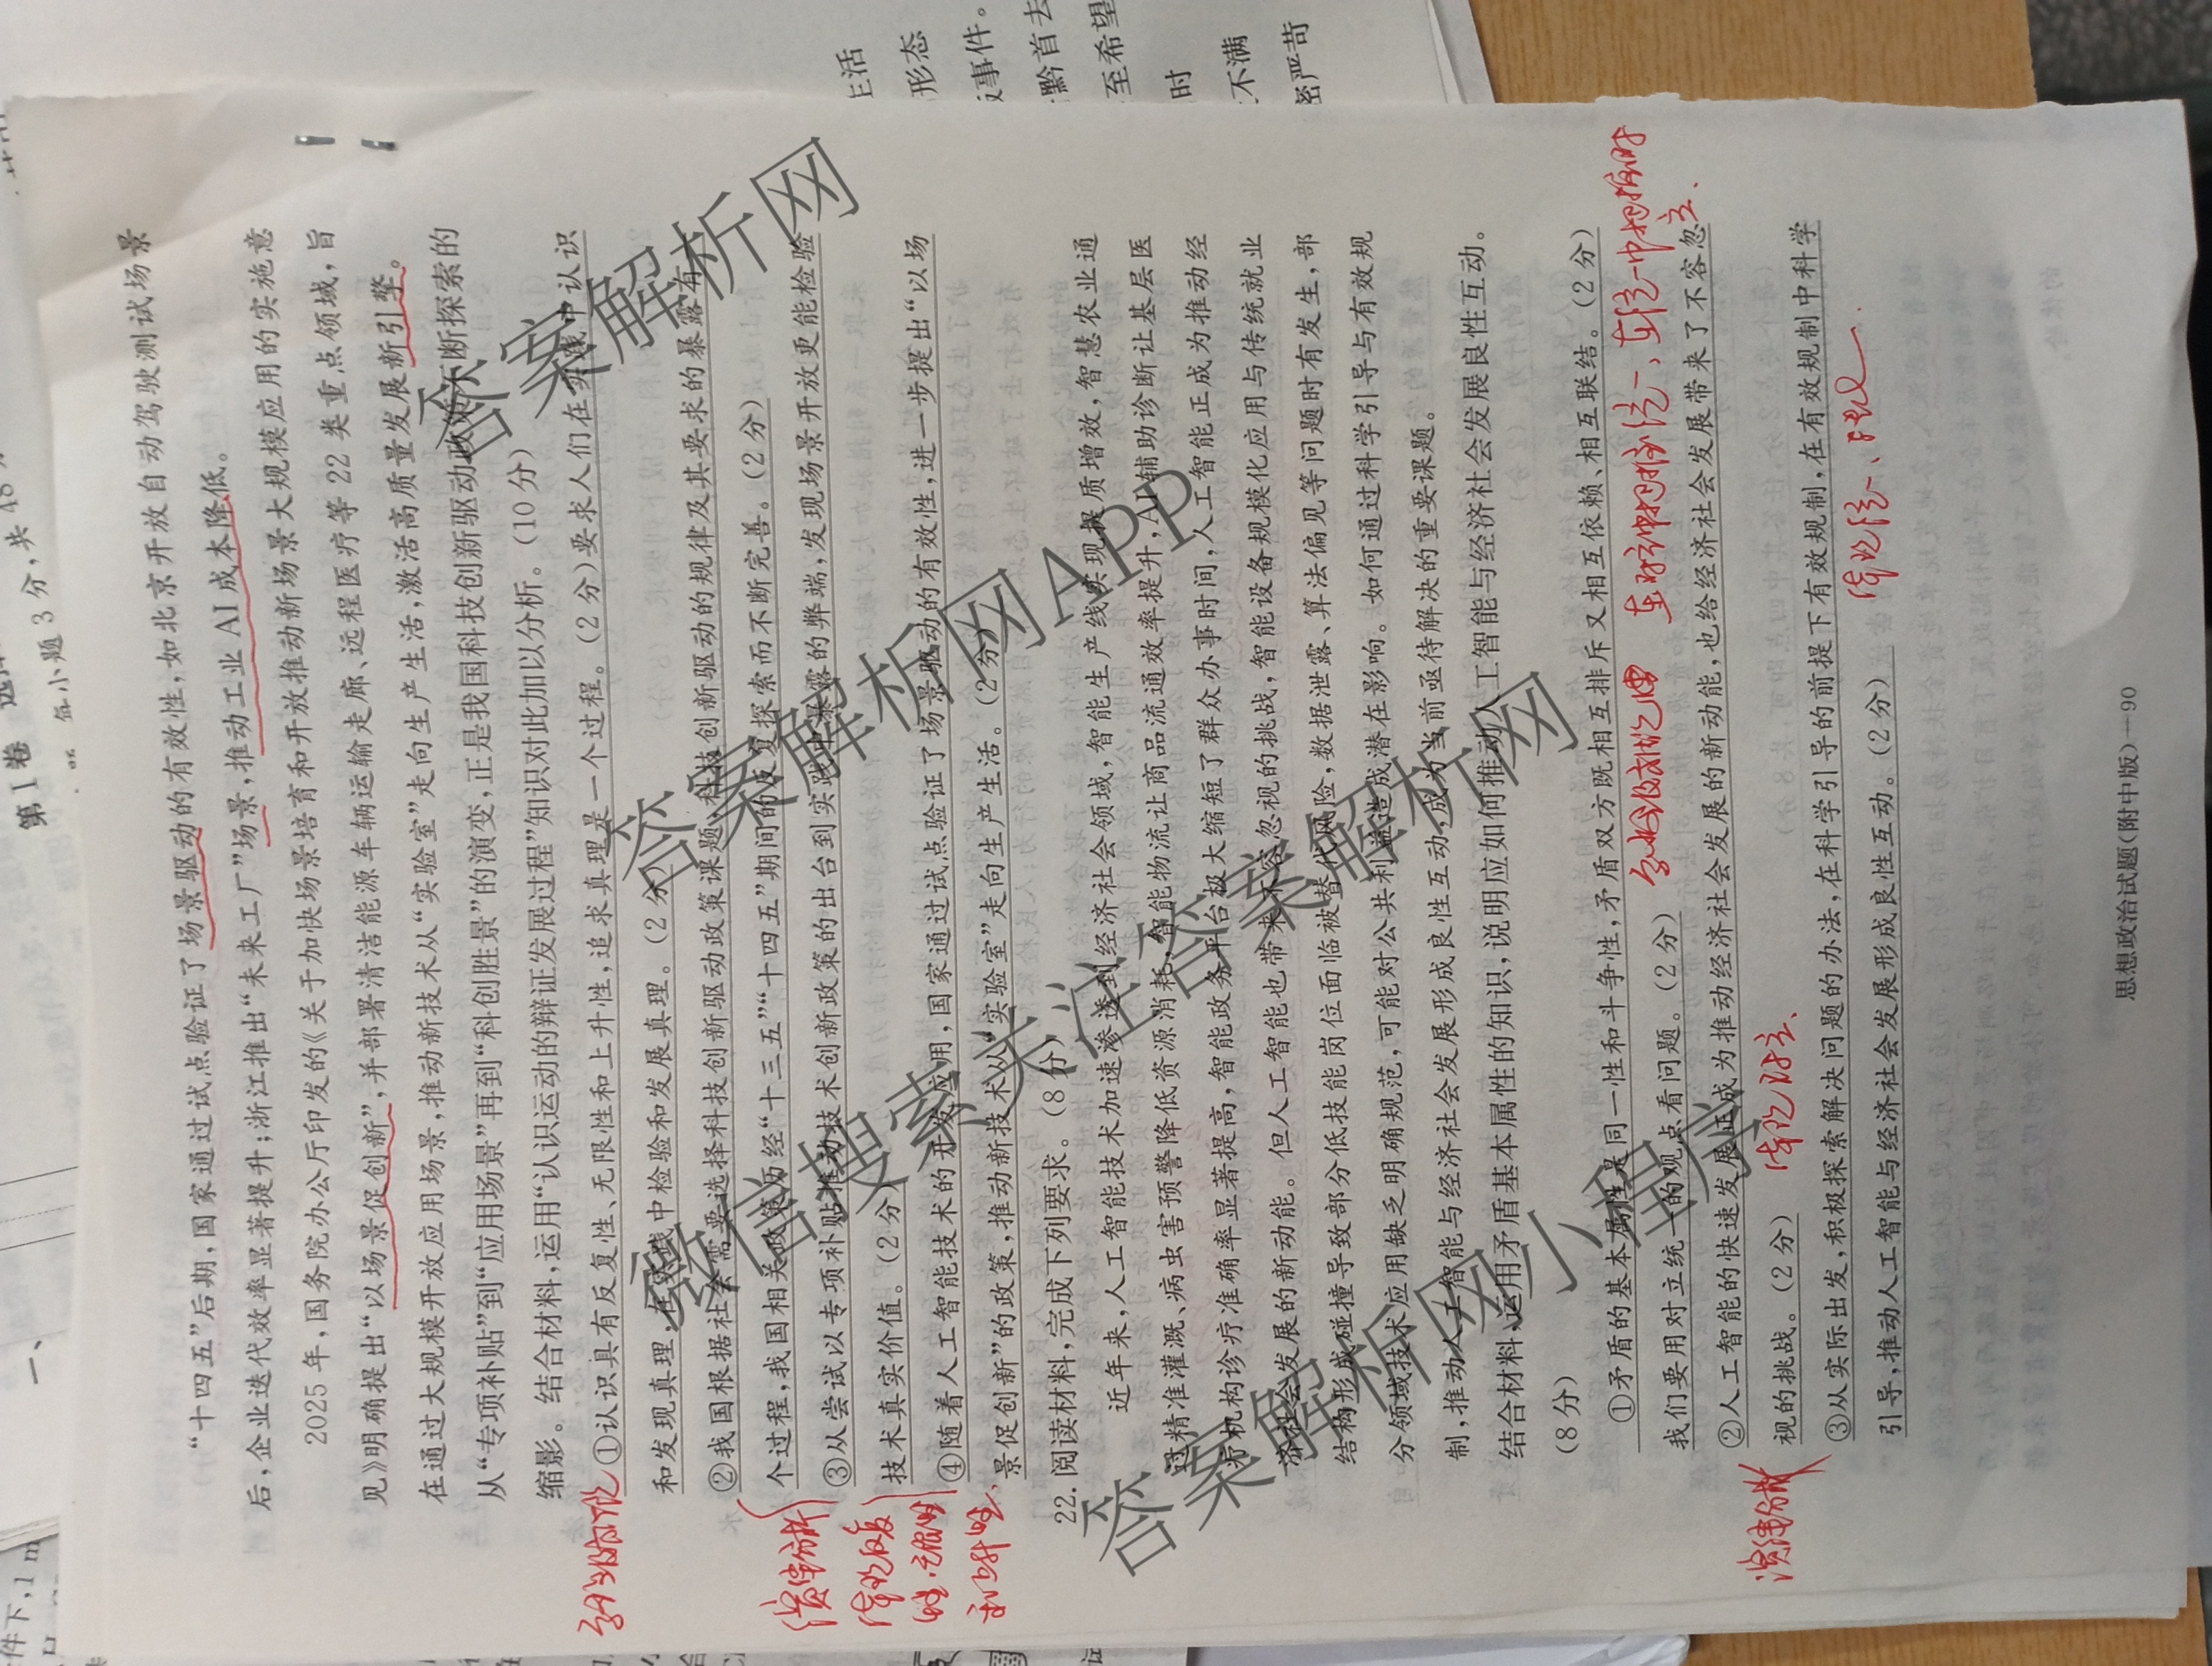 生活
形态
事件。
黔首去
至希望
时
不满
密严苛
件下,1 m
一、
第Ⅰ卷 选
每小题3分,共48分
“十四五”后期,国家通过试点验证了场景驱动的有效性,如北京开放自动驾驶测试场景
后,企业迭代效率显著提升;浙江推出“未来工厂”场景,推动工业AI成本降低。
2025年,国务院办公厅印发的《关于加快场景培育和开放推动新场景大规模应用的实施意
见》明确提出“以场景促创新”,并部署清洁能源车辆运输走廊、远程医疗等22类重点领域,旨
在通过大规模开放应用场景,推动新技术从“实验室”走向生产生活,激活高质量发展新引擎。
从“专项补贴”到“应用场景”再到“科创胜景”的演变,正是我国科技创新驱动政策不断探索的
缩影。结合材料,运用“认识运动的辩证发展过程”知识对此加以分析。(10分)
①认识具有反复性、无限性和上升性,追求真理是一个过程。(2分)要求人们在实践中认识
和发现真理,在实践中检验和发展真理。(2分)
②我国根据社会需要选择科技创新驱动政策课题,科技创新驱动的规律及其要求的暴露有
个过程,我国相关政策历经“十三五”“十四五”期间的反复探索而不断完善。(2分)
③从尝试以专项补贴推动技术创新政策的出台到实践中暴露的弊端,发现场景开放更能检验
技术真实价值。(2分)
④随着人工智能技术的开发应用,国家通过试点验证了场景驱动的有效性,进一步提出“以场
景促创新”的政策,推动新技术从“实验室”走向生产生活。(2分)
22. 阅读材料,完成下列要求。(8分)
近年来,人工智能技术加速渗透到经济社会领域,智能生产线实现提质增效,智慧农业通
过精准灌溉、病虫害预警降低资源消耗,智能物流让商品流通效率提升,AI辅助诊断让基层医
疗机构诊疗准确率显著提高,智能政务平台极大缩短了群众办事时间,人工智能正成为推动经
济社会发展的新动能。但人工智能也带来不容忽视的挑战,智能设备规模化应用与传统就业
结构形成碰撞导致部分低技能岗位面临被替代风险,数据泄露、算法偏见等问题时有发生,部
分领域技术应用缺乏明确规范,可能对公共利益造成潜在影响。如何通过科学引导与有效规
制,推动人工智能与经济社会发展形成良性互动,成为当前亟待解决的重要课题。
结合材料,运用矛盾基本属性的知识,说明应如何推动人工智能与经济社会发展良性互动。
(8分)
①矛盾的基本属性是同一性和斗争性,矛盾双方既相互排斥又相互依赖、相互联结。(2分)
我们要用对立统一的观点看问题。(2分)
②人工智能的快速发展正成为推动经济社会发展的新动能,也给经济社会发展带来了不容忽
视的挑战。(2分)
③从实际出发,积极探索解决问题的办法,在科学引导的前提下有效规制,在有效规制中科学
引导,推动人工智能与经济社会发展形成良性互动。(2分)
思想政治试题(附中版)—90
答案解析网
答案解析网APP
微信搜索关注答案解析网
答案解析网小程序